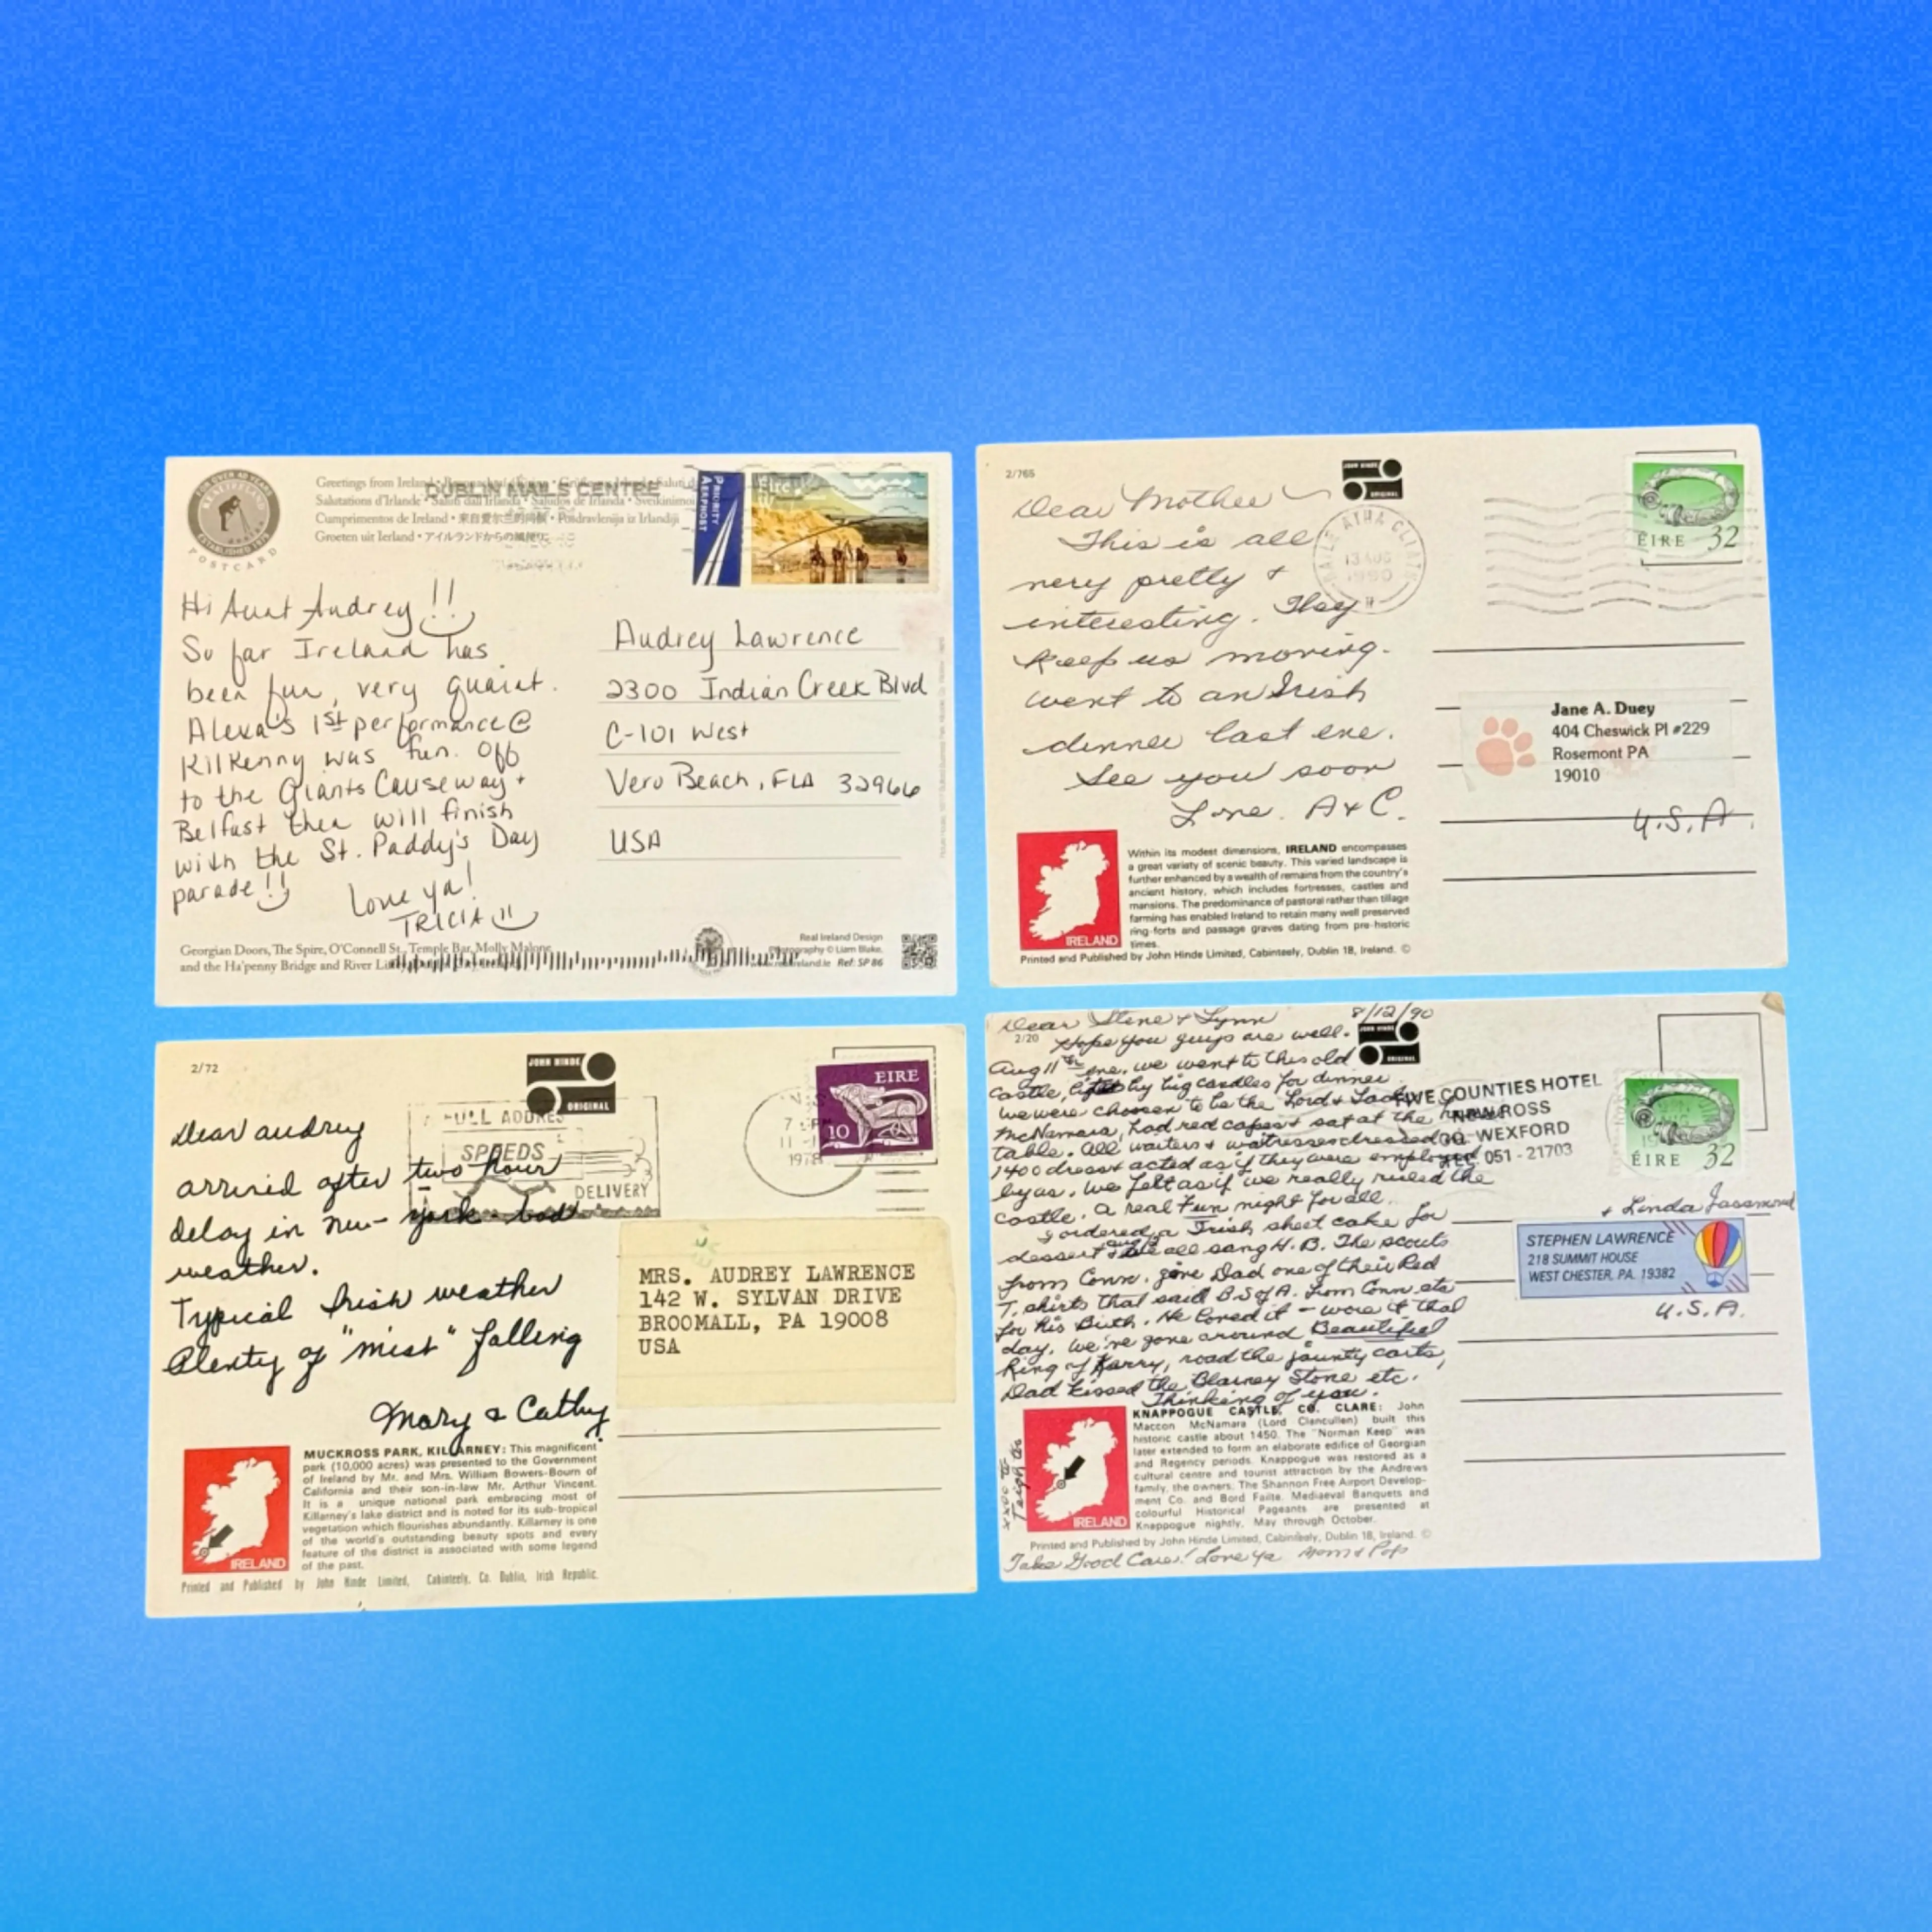 POSTCARD
Greetings from Ireland
DUBLIN MAILS CENTRE
Salutations d'Irlande • Saluti dall'Irlanda • Saludos de Irlanda • Sveikinimai
Cumprimentos de Ireland • 来自爱尔兰的问候 • Pozdravlenija iz Irlandiji
Groeten uit Ierland • アイルランドからの
PRIORITY
AERPHOST
Hi Aunt Audrey!!
So far Ireland has
been fun, very quaint.
Alexa's 1st performance @
Kilkenny was fun. Off
to the Giants Causeway +
Belfast then will finish
with the St. Paddy's Day
parade!!
Love ya!
TRICIA
Audrey Lawrence
2300 Indian Creek Blvd
C-101 West
Vero Beach, FLA 32966
USA
Georgian Doors, The Spire, O'Connell St., Temple Bar, Molly Malone
and the Ha'penny Bridge and River
Real Ireland Design
Photography © Liam Blake,
www.realireland.ie Ref: SP 86
2/765
JOHN HINDE
ORIGINAL
Dear Mother
This is all
very pretty +
interesting. They
keep us moving.
Went to an Irish
dinner last eve.
See you soon
Love. A & C.
BAILE ATHA CLIATH
13 AUG
1990
ÉIRE 32
Jane A. Duey
404 Cheswick Pl #229
Rosemont PA
19010
U.S.A.
IRELAND
Within its modest dimensions, IRELAND encompasses
a great variety of scenic beauty. This varied landscape is
further enhanced by a wealth of remains from the country's
ancient history, which includes fortresses, castles and
mansions. The predominance of pastoral rather than tillage
farming has enabled Ireland to retain many well preserved
ring-forts and passage graves dating from pre-historic
times.
Printed and Published by John Hinde Limited, Cabinteely, Dublin 18, Ireland. ©
2/72
JOHN HINDE
ORIGINAL
FULL ADDRESS
SPEEDS
DELIVERY
1978
EIRE
10
Dear Audrey
arrived after two hour
delay in New York - bad
weather.
Typical Irish weather
Plenty of "mist" falling
Mary & Cathy
MRS. AUDREY LAWRENCE
142 W. SYLVAN DRIVE
BROOMALL, PA 19008
USA
IRELAND
MUCKROSS PARK, KILLARNEY: This magnificent
park (10,000 acres) was presented to the Government
of Ireland by Mr. and Mrs. William Bowers-Bourn of
California and their son-in-law Mr. Arthur Vincent.
It is a unique national park embracing most of
Killarney's lake district and is noted for its sub-tropical
vegetation which flourishes abundantly. Killarney is one
of the world's outstanding beauty spots and every
feature of the district is associated with some legend
of the past.
Printed and Published by John Hinde Limited, Cabinteely, Co. Dublin, Irish Republic.
Dear Steve & Lynn 8/12/90
2/20
JOHN HINDE
ORIGINAL
Hope you guys are well.
Aug 11th eve. we went to this old
castle, by big candles for dinner
we were chosen to be the Lord & Lady
McNamara, had red capes & sat at the
table. All waiters & waitresses dressed in
1400 dress & acted as if they were employed
by us. We felt as if we really ruled the
castle. A real Fun night for all.
I ordered a Irish sheet cake for
dessert & we all sang H. B. The scouts
from Conn. gave Dad one of their Red
T. shirts that said B.S of A. from Conn. etc
for his Birth. He loved it - wore it that
day. We've gone around Beautiful
Ring of Karry, road the jaunty carts,
Dad kissed the Blarney Stone etc.
Thinking of you.
FIVE COUNTIES HOTEL
NEW ROSS
CO. WEXFORD
TEL. 051 - 21703
ÉIRE 32
+ Linda
STEPHEN LAWRENCE
218 SUMMIT HOUSE
WEST CHESTER, PA. 19382
U.S.A.
IRELAND
KNAPPOGUE CASTLE, CO. CLARE: John
Maccon McNamara (Lord Clancullen) built this
historic castle about 1450. The "Norman Keep" was
later extended to form an elaborate edifice of Georgian
and Regency periods. Knappogue was restored as a
cultural centre and tourist attraction by the Andrews
family, the owners, The Shannon Free Airport Develop-
ment Co. and Bord Failte. Mediaeval Banquets and
colourful Historical Pageants are presented at
Knappogue nightly, May through October.
Printed and Published by John Hinde Limited, Cabinteely, Dublin 18, Ireland. ©
Take Good Care! Love Ya Mom & Pop